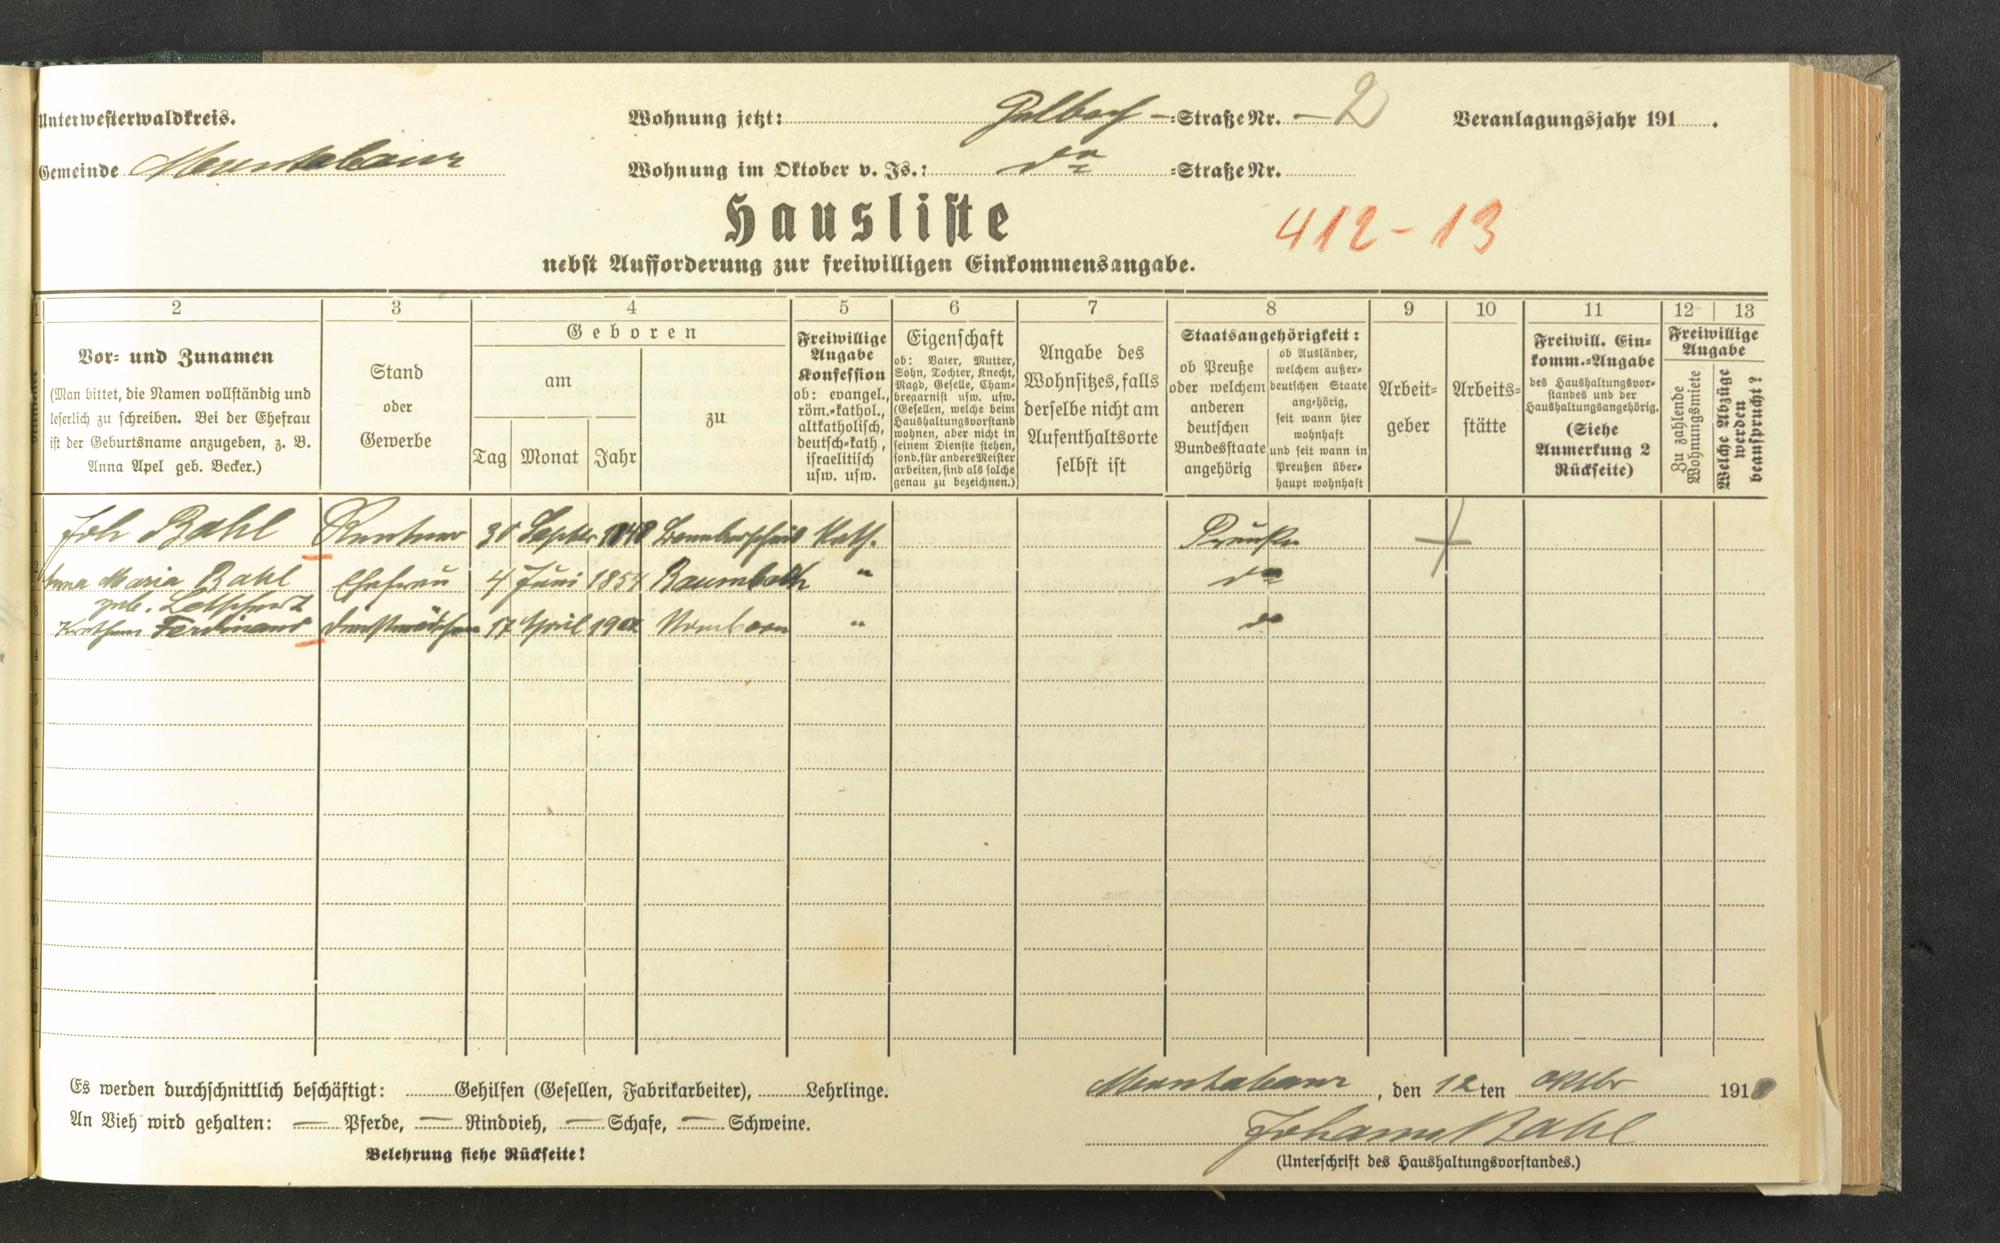 Unterwesterwaldkreis.
Wohnung jetzt: Gelbach -Straße Nr. - 2
Veranlagungsjahr 191 .
Gemeinde Montabaur
Wohnung im Oktober v. Js.: do -Straße Nr.
Hausliste
412-13
nebst Aufforderung zur freiwilligen Einkommensangabe.
1 2 3 4 5 6 7 8 9 10 11 12 13
Vor- und Zunamen
(Man bittet, die Namen vollständig und
leserlich zu schreiben. Bei der Ehefrau
ist der Geburtsname anzugeben, z. B.
Anna Apel geb. Becker.)
Stand
oder
Gewerbe
Geboren
am
Tag Monat Jahr
zu
Freiwillige
Angabe
Konfession
ob: evangel.,
röm.-kathol.,
altkatholisch,
deutsch-kath.,
israelitisch
usw. usw.
Eigenschaft
ob: Vater, Mutter,
Sohn, Tochter, Knecht,
Magd, Geselle, Cham-
bregarnist usw. usw.
(Gesellen, welche beim
Haushaltungsvorstand
wohnen, aber nicht in
seinem Dienste stehen,
sond. für andere Meister
arbeiten, sind als solche
genau zu bezeichnen.)
Angabe des
Wohnsitzes, falls
derselbe nicht am
Aufenthaltsorte
selbst ist
Staatsangehörigkeit:
ob Preuße
oder welchem
anderen
deutschen
Bundesstaate
angehörig
ob Ausländer,
welchem außer-
deutschen Staate
angehörig,
seit wann hier
wohnhaft
und seit wann in
Preußen über-
haupt wohnhaft
Arbeit-
geber
Arbeits-
stätte
Freiwill. Ein-
komm.-Angabe
des Haushaltungsvor-
standes und der
Haushaltungsangehörig.
(Siehe
Anmerkung 2
Rückseite)
Freiwillige
Angabe
Zu zahlende
Wohnungsmiete
Welche Abzüge
werden
beansprucht?
1 Joh Bahl Rentner 30 Septbr 1848 Kath. Preuße
2 Anna Maria Bahl Ehefrau 4 Juni 1854 Baumbach " do
geb. Letschert
3 Ferdinand Dienstmädchen 17 April Nomborn " do
4
5
6
7
8
9
10
11
12
Es werden durchschnittlich beschäftigt: Gehilfen (Gesellen, Fabrikarbeiter), Lehrlinge.
Montabaur, den 12ten Oktbr 191
An Vieh wird gehalten: — Pferde, — Rindvieh, — Schafe, — Schweine.
Johann Bahl
Belehrung siehe Rückseite!
(Unterschrift des Haushaltungsvorstandes.)